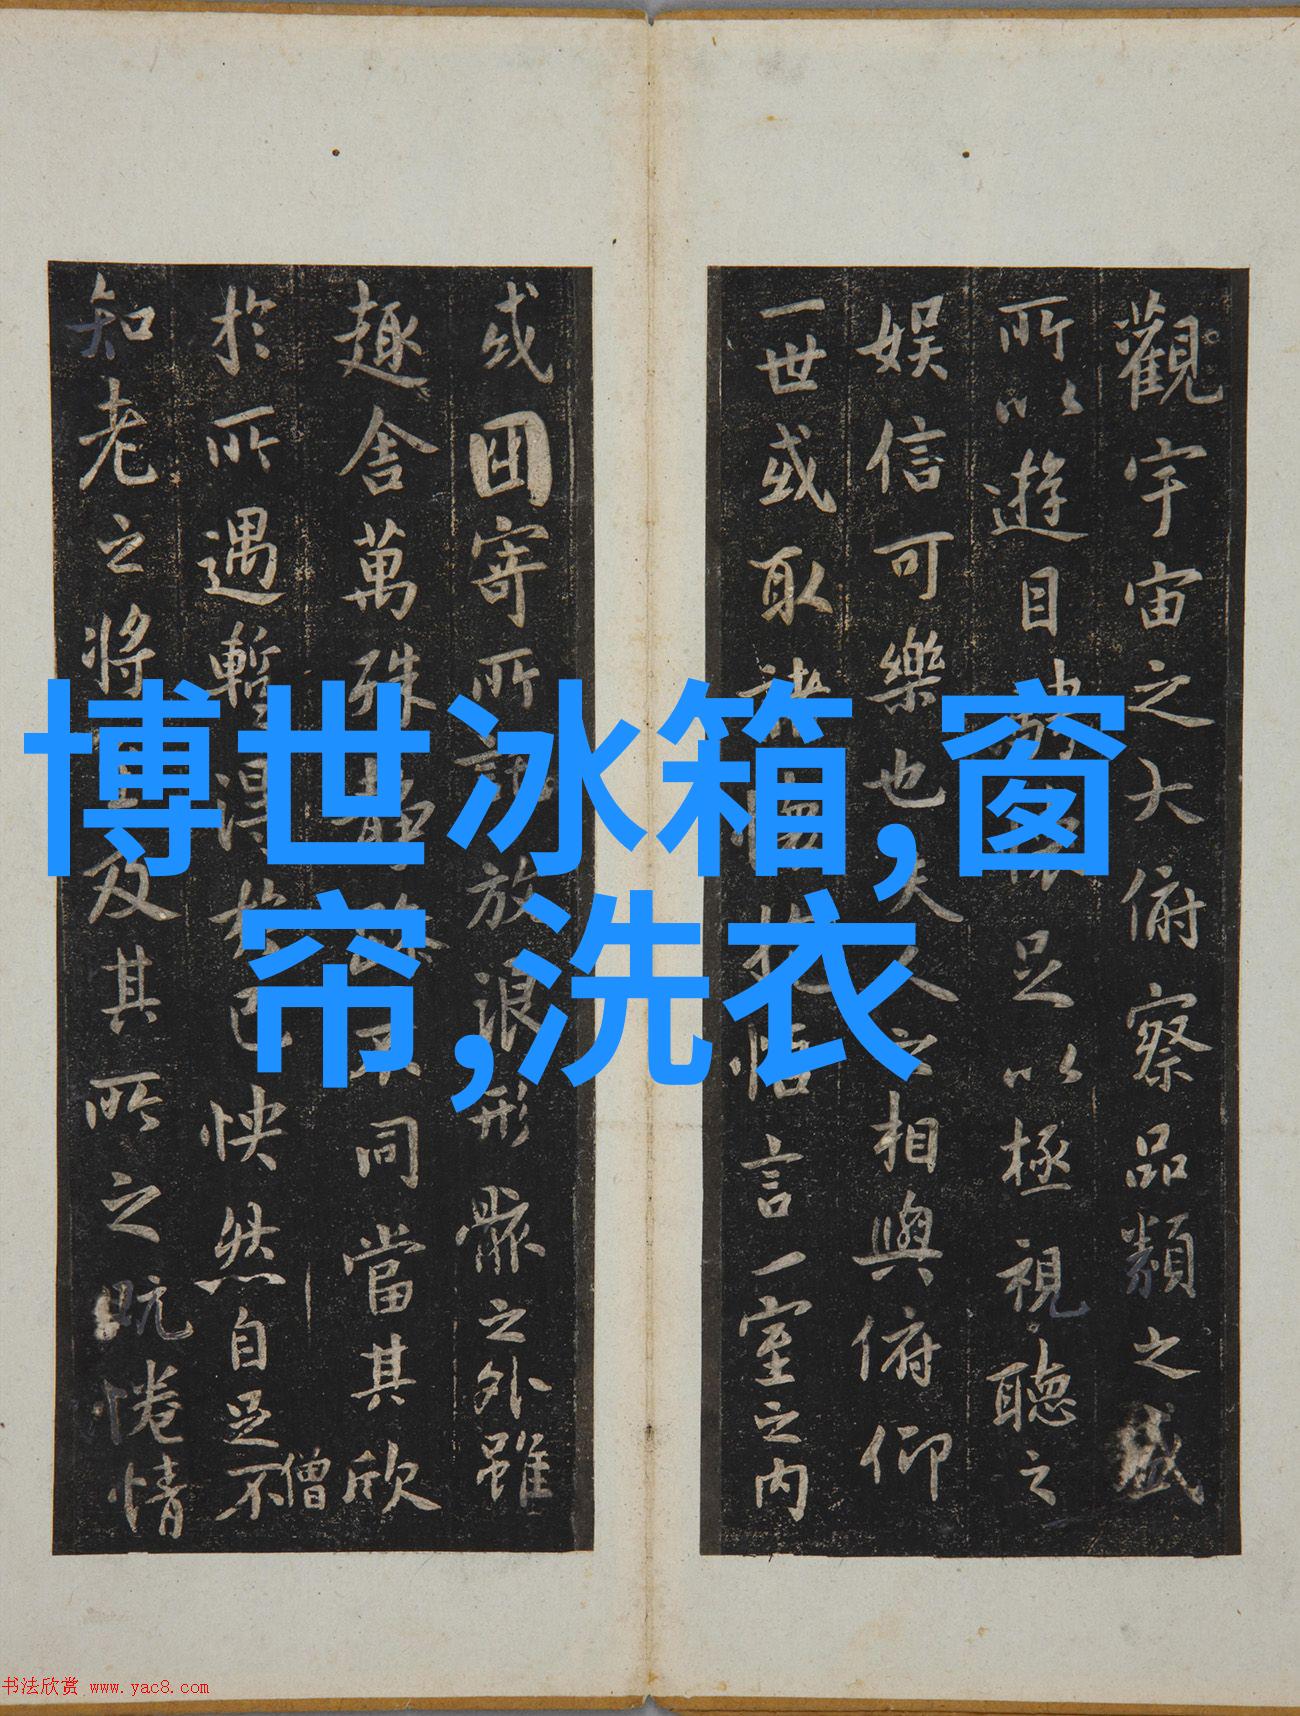 觀宇宙之大俯察品類之盛
所以遊目騁懷足以極視聽之
娛信可樂也夫人之相與俯仰
一世或取諸懷抱悟言一室之内
或因寄所託放浪形骸之外雖
趣舍萬殊靜躁不同當其欣
僧
於所遇暫得於己快然自足不
知老之將至及其所之既惓情
博世冰箱,窗
帘,洗衣
书法欣赏 www.yac8.com